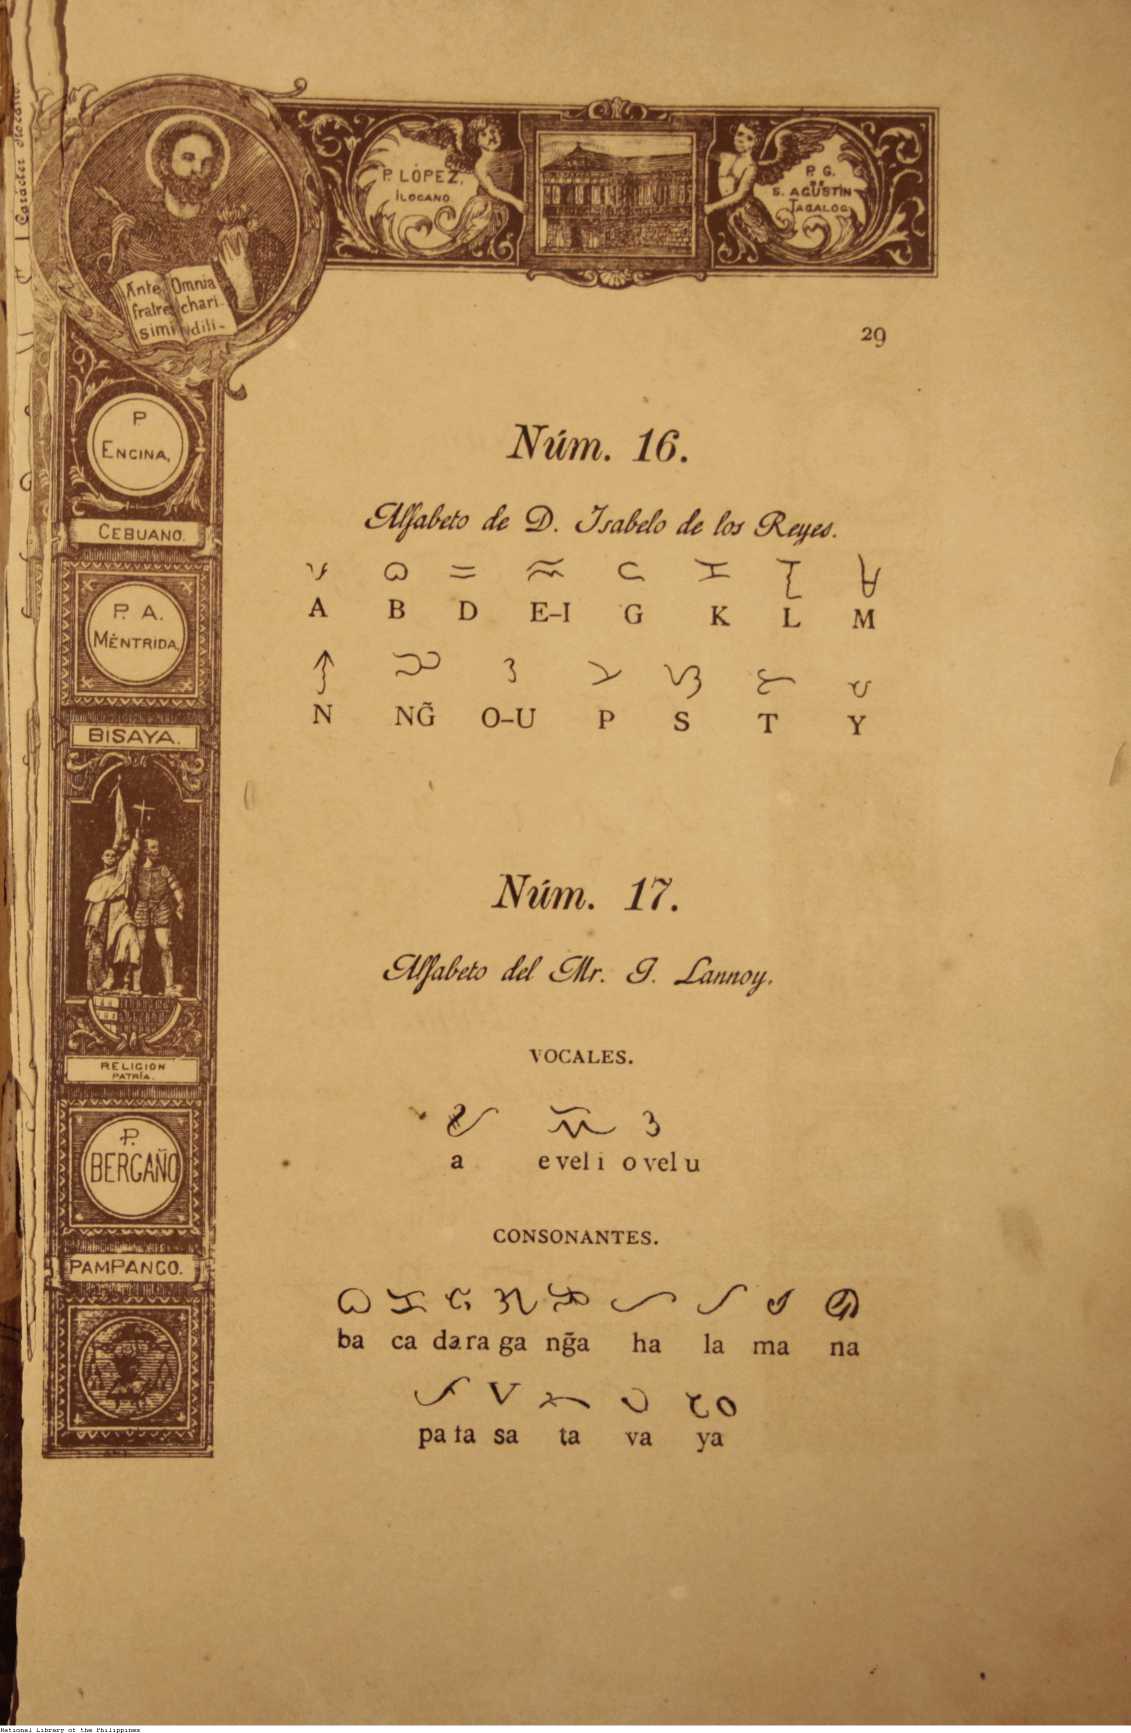 Caracter Ilocano.
P. LÓPEZ,
ILOCANO
P. G.
DE
S. AGUSTÍN
TAGALOG
Ante Omnia
fratres chari
simi dili-
29
P.
ENCINA,
CEBUANO.
P. A.
MÉNTRIDA,
BISAYA.
RELIGION
PATRÍA.
P.
BERGAÑO
PAMPANGO.
Núm. 16.
Alfabeto de D. Isabelo de los Reyes.
ᜀ ᜊ ᜇ ᜁ ᜄ ᜃ ᜎ ᜋ
A B D E–I G K L M
ᜈ ᜅ ᜂ ᜉ ᜐ ᜆ ᜌ
N NG̃ O–U P S T Y
Núm. 17.
Alfabeto del Mr. G. Lannoy.
VOCALES.
ᜀ ᜁ ᜂ
a e vel i o vel u
CONSONANTES.
ᜊ ᜃ ᜇ ᜄ ᜅ ᜑ ᜎ ᜋ ᜈ
ba ca da ra ga ng̃a ha la ma na
ᜉ ᜐ ᜆ ᜏ ᜌ
pa fa sa ta va ya
National Library of the Philippines